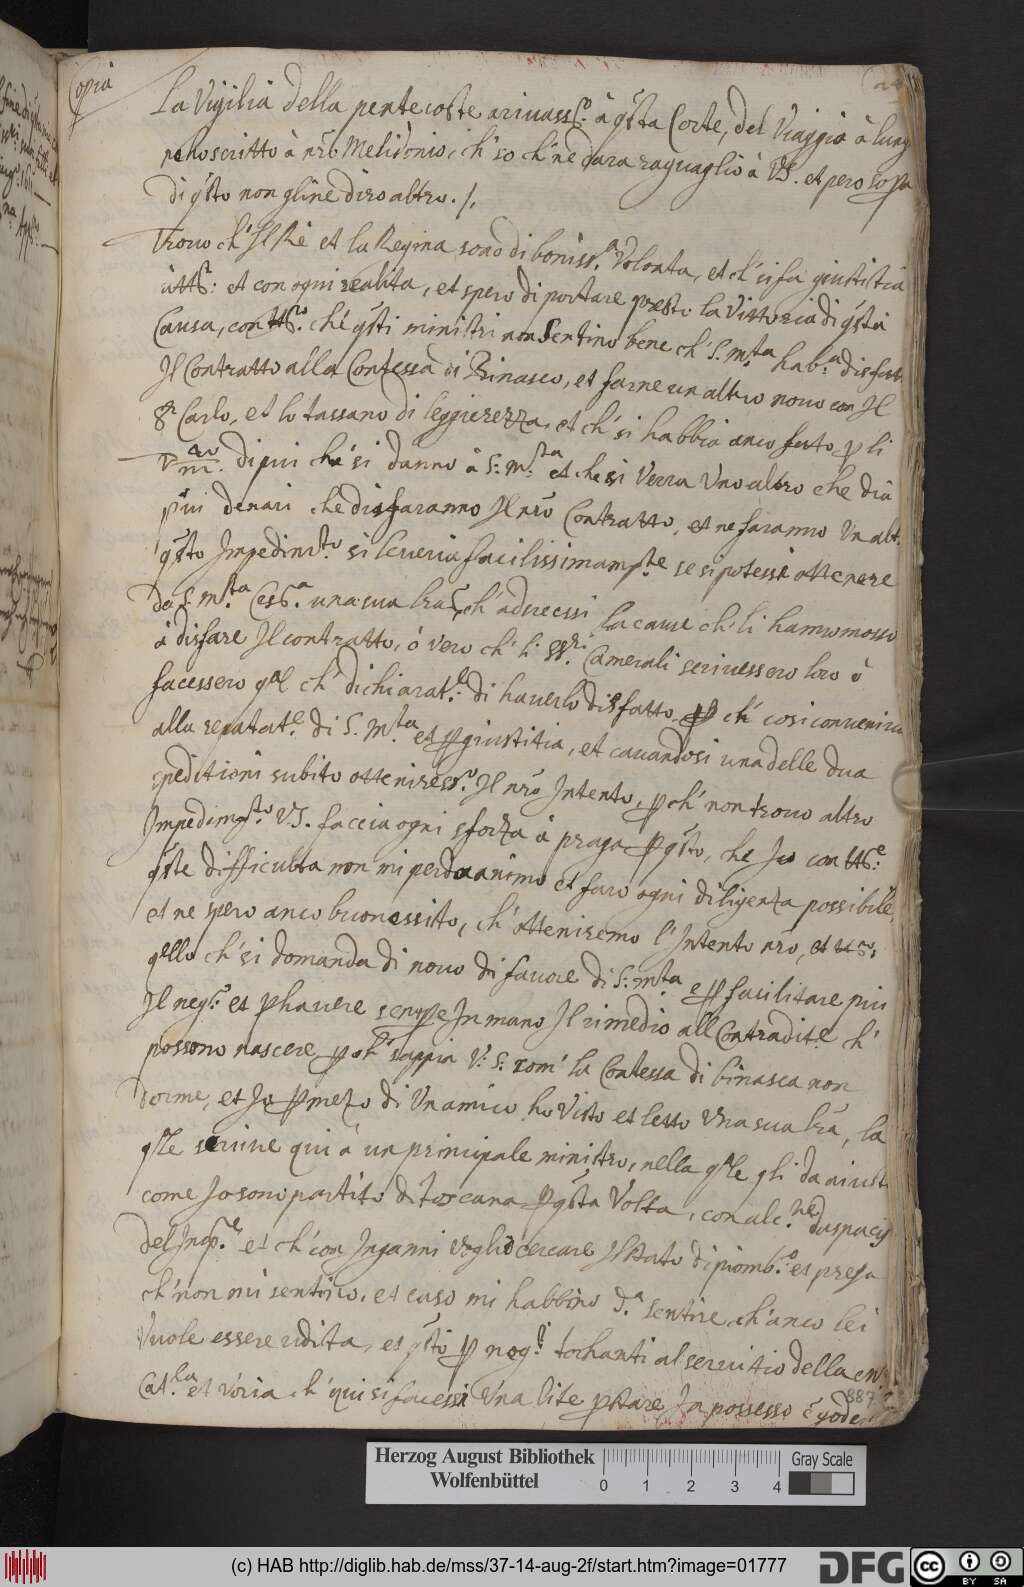 Copia
La Vigilia della pentecoste arivass.º à q̃sta Corte, del Viaggio à lungo
scritto à nr̃o Melidonio, ch' so ch' ne dara raguaglio à VS. et pero sop.a
di q̃sto non gline diro altro ./.
Trovo ch' Il Rè et la Regina sono di boniss.a Volonta, et ch' si fa giustitia
à tt.i et con ogni realita, et spero di portare presto la Vittoria di q̃sta
Causa, con tt.o che q̃sti ministri non sentino bene ch' S. M.ta hab.a disfatt
Il Contratto alla Contessa di Binasco, et farne un altro novo con Il
S.r Carlo, et lo tassano di leggierezza, et ch' si habbia anco fatto p li
di piu che si danno à S. M.ta et che si Verra Uno altro che dia
piu denari che disfaranno Il nr̃o Contratto, et ne faranno Un alt.
q̃sto Impedim.to si leveria facilissimam.te se si potessi ottenere
da S. M.ta Ces.a una sua lr̃a, ch' adducessi la cause ch' li hanno mosso
à disfare Il contratto, ò vero ch' li SS.ri Camerali scrivessero loro ò
facessero q.al ch' dichiarat.e di haverlo disfatto p ch' cosi conveniva
alla reputat.e di S. M.ta et p giustitia, et cavandosi una delle dua
speditioni subito otteniress.o Il nr̃o Intento, p ch' non trovo altro
Impedim.to VS. faccia ogni sforza à praga p q̃sto, che Io con tt.e
q̃ste difficulta non mi perdo animo et faro ogni diligenza possibile,
et ne spero anco buon essito, ch' otteniremo l' Intento nr̃o, et tt.o
q.ello ch' si domanda di novo di favore di S. M.ta e p facilitare piu
Il neg.o et p havere sempre In mano Il rimedio alle Contradit.e ch'
possono nascere, p ch' sappia V. S. com' la Contessa di binasca non
dorme, et Io p mezo di Un amico ho Visto et letto Una sua lr̃a, la
q.le scrive qui à un principale ministro, nella q.le gli da aviso
come Io sono partito di toscana p q̃sta Volta, con alc.ne dispacij
del Imp.re et ch' con Inganni voglio cercare Il stato di piomb.o et prega
ch' non mi sentino, et caso mi habbino d.a sentire, ch' anco lei
Vuole essere udita, et q̃sto p neg.i tochanti al servitio della
Cat.ca et voria ch' qui si facessi Una lite p stare In possesso
887
Herzog August Bibliothek
Wolfenbüttel
0 1 2 3 4
Gray Scale
(c) HAB http://diglib.hab.de/mss/37-14-aug-2f/start.htm?image=01777
DFG
CC BY SA